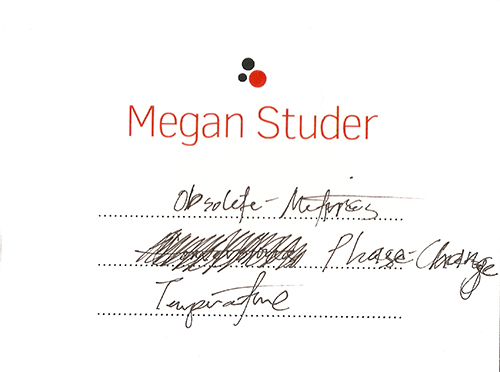 Megan Studer
Obsolete- Metrics
Phase-Change
Temperature